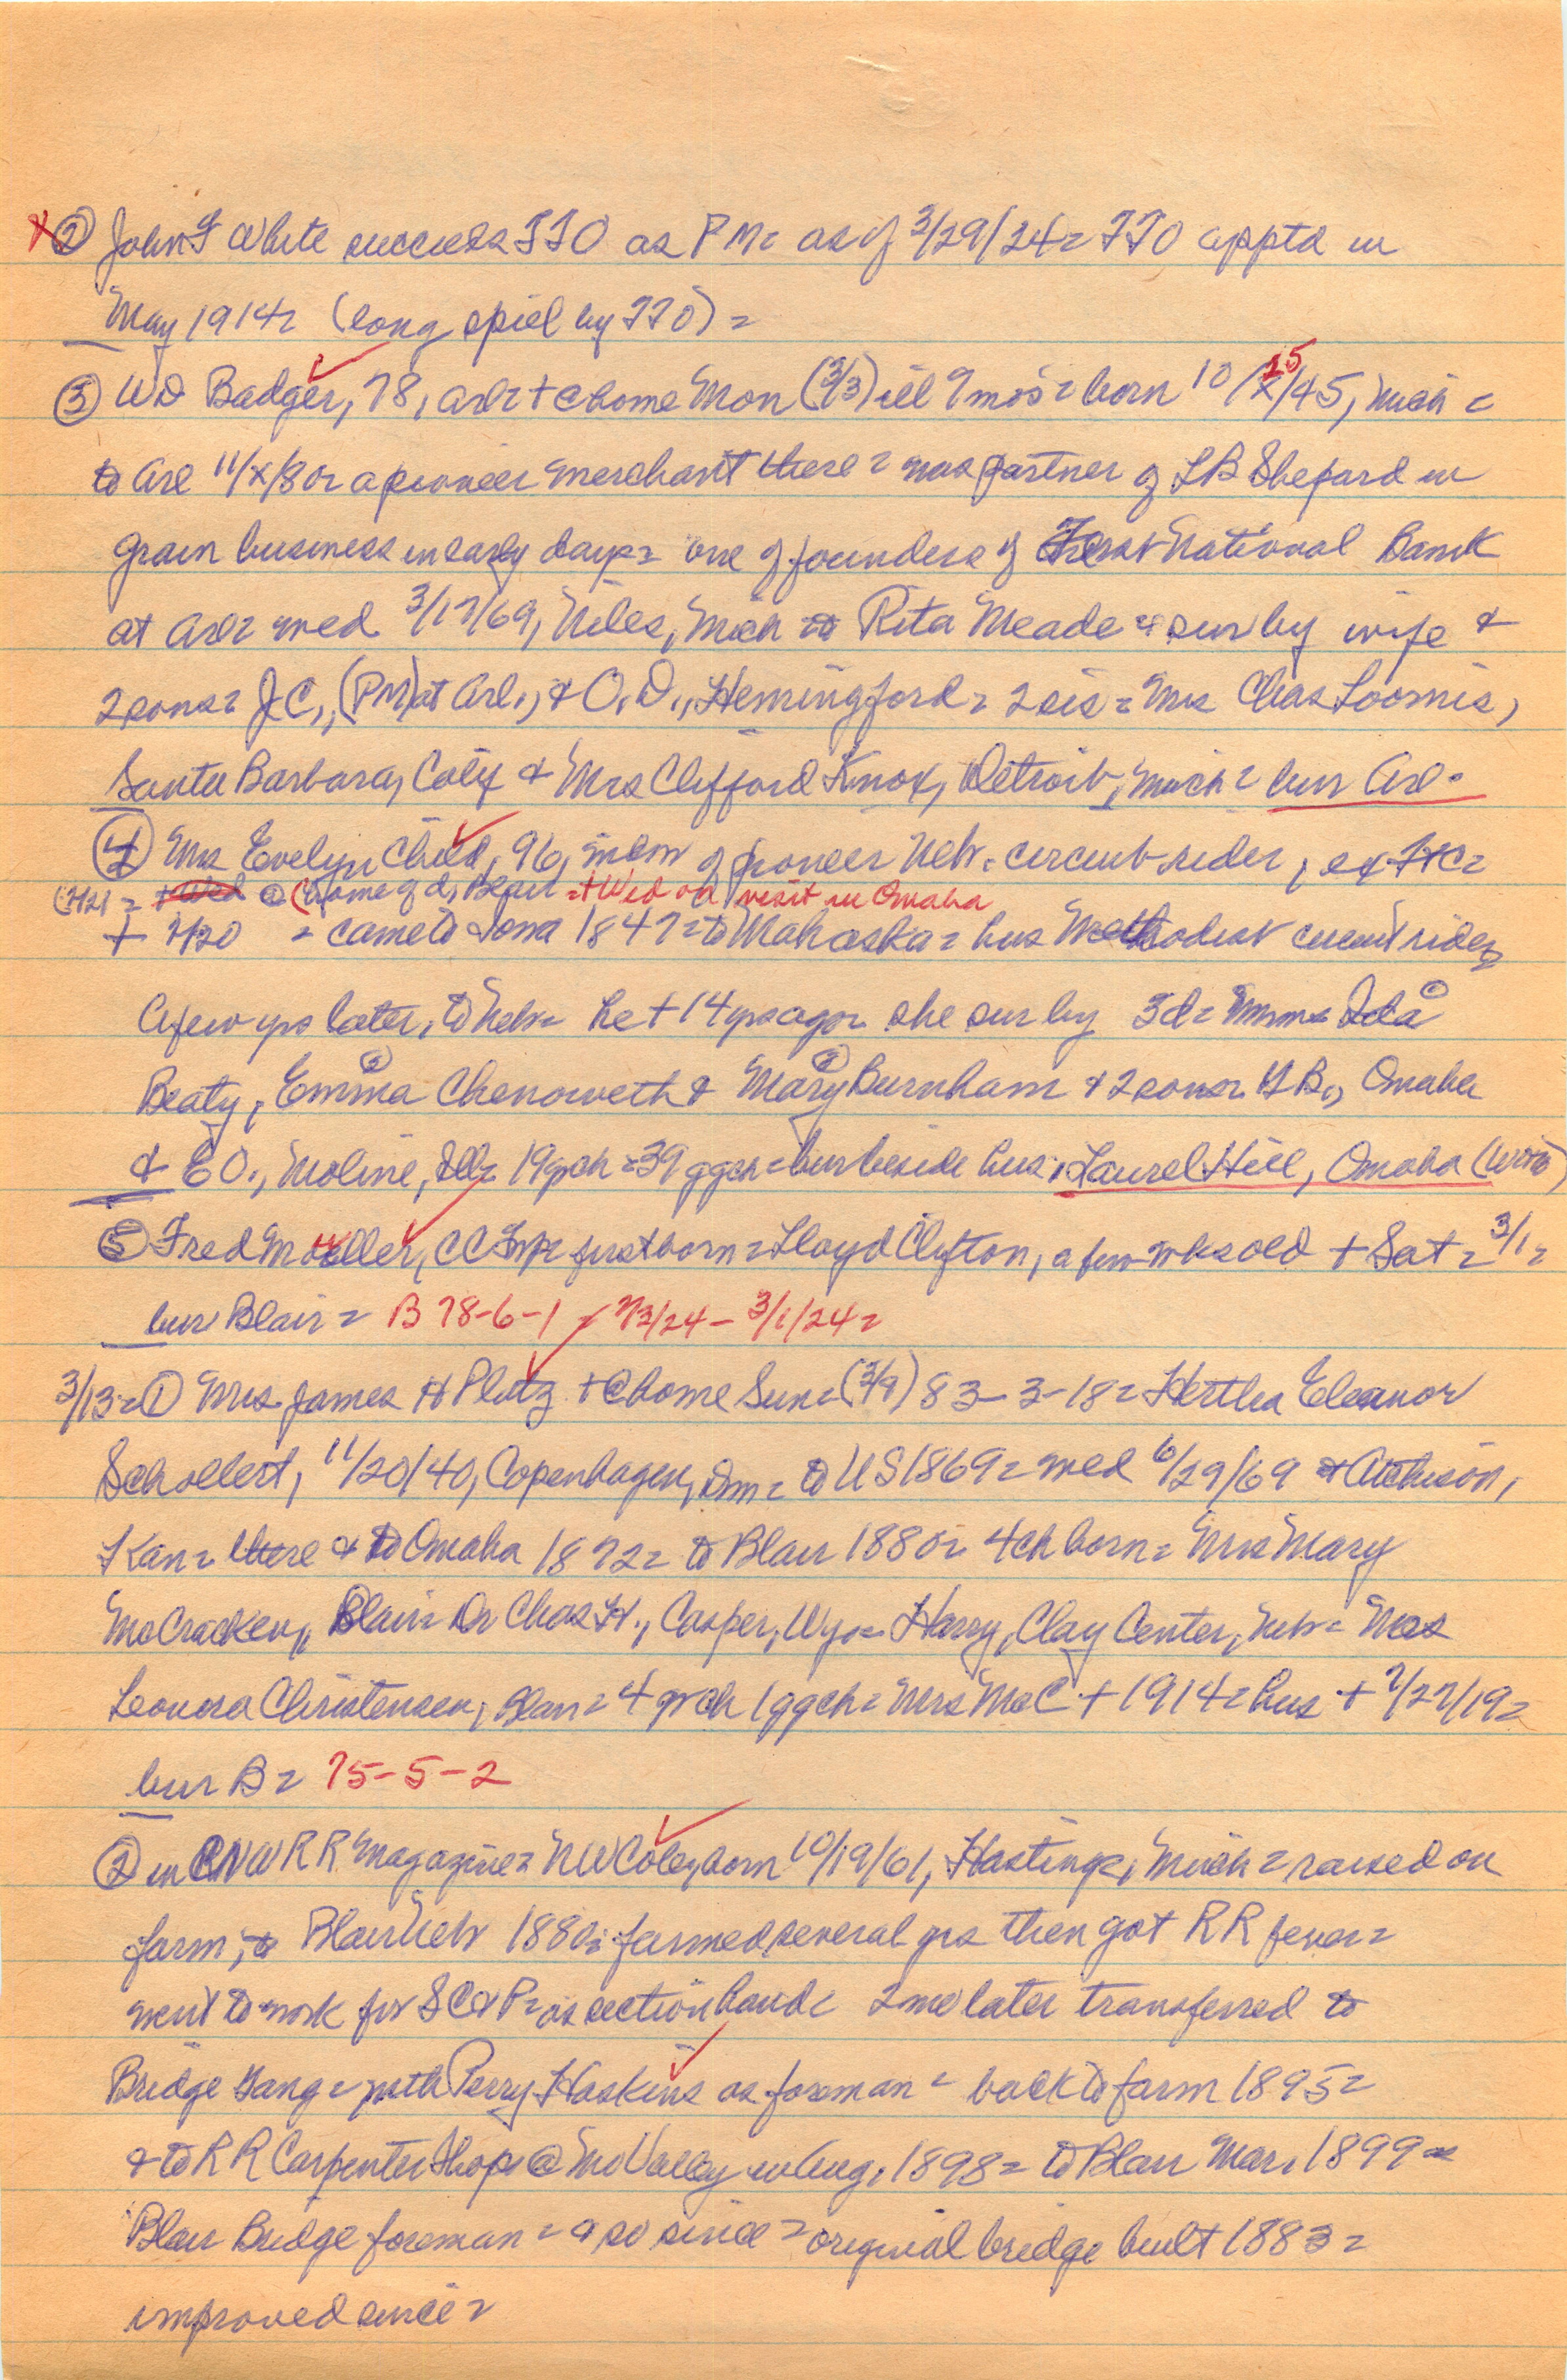 x② John F White succeeds TTO as PM = as of 3/29/24 = TTO apptd in
May 1914 = (long spiel by TTO) =
③ WD Badger, 78, Arl = + @ home Mon (3/3) ill 9 mos = born 10/15/45, Mich =
to Arl 11/x/80 = a pioneer merchant there = was partner of LB Shepard in
grain business in early days = one of founders of First National Bank
at Arl = wed 3/17/69, Niles, Mich to Rita Meade = sur by wife &
2 sons = J.C., (PM) at Arl., & O.D., Hemingford = 2 sis = Mrs Chas Loomis,
Santa Barbara, Calif & Mrs Clifford Knox, Detroit, Mich = bur Arl.
④ Mrs Evelyn Child, 96, widow of pioneer Neb. circuit-rider, ex
= (home of d, = + Wed on visit in Omaha
+ = came to Iowa 1847 = to Mahaska = hus Methodist circuit rider,
A few yrs later, to Neb = he + 14 yrs ago = she sur by 3d = Mmes Ida ①
Beaty, Emma ③ Chenoweth & Mary ② Burnham & 2 sons = B., Omaha
& EO., Moline, Ill = 19 gch = 39 ggch = bur beside hus, Laurel Hill, Omaha
⑤ Fred Moeller, CC first born = Lloyd Clifton, a few wks old + Sat = 3/1 =
bur Blair = B 78-6-1 - 3/1/24 =
3/13 = ① Mrs James H Platz + @ home Sun = (3/9) 83-3-18 = Hertha Eleanor
Schollert, 11/20/40, Copenhagen, Dm = to US 1869 = wed 6/29/69 @ Atchison,
Kan = there & to Omaha 1872 = to Blair 1880 = 4 ch born = Mrs Mary
McCracken, Blair = Dr Chas H., Casper, Wyo = Harry, Clay Center, Neb = Mrs
Leonora Christensen, Blair = 4 grch 1 ggch = Mrs McC + 1914 = hus + 7/27/19 =
bur B = 75-5-2
② in CNW RR Magazine = NW Coley, born 10/19/61, Hastings, Mich = raised on
farm, to Blair Neb 1880 = farmed several yrs then got RR fever =
went to work for SC&P = as section hand = 2 mo later transferred to
Bridge Gang = with Perry Haskins as foreman = back to farm 1895 =
& to RR Carpenter Shops @ Mo Valley in Aug, 1898 = to Blair Mar, 1899 =
Blair Bridge foreman = & so since = original bridge built 1883 =
improved since =